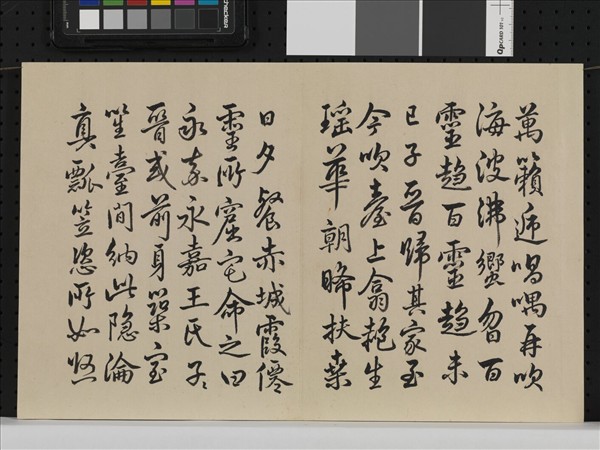 萬籟逓唱喁再吹
海波沸蠁曶百
靈趨百靈趨未
已子晉歸其家至
今吹臺上翕赩生
瑶華朝晞扶桒
日夕餐赤城霞僊
靈所窟宅命之曰
永嘉永嘉王氏子
晉或前身築室
笙臺間納此隐淪
真瓢笠恣所如